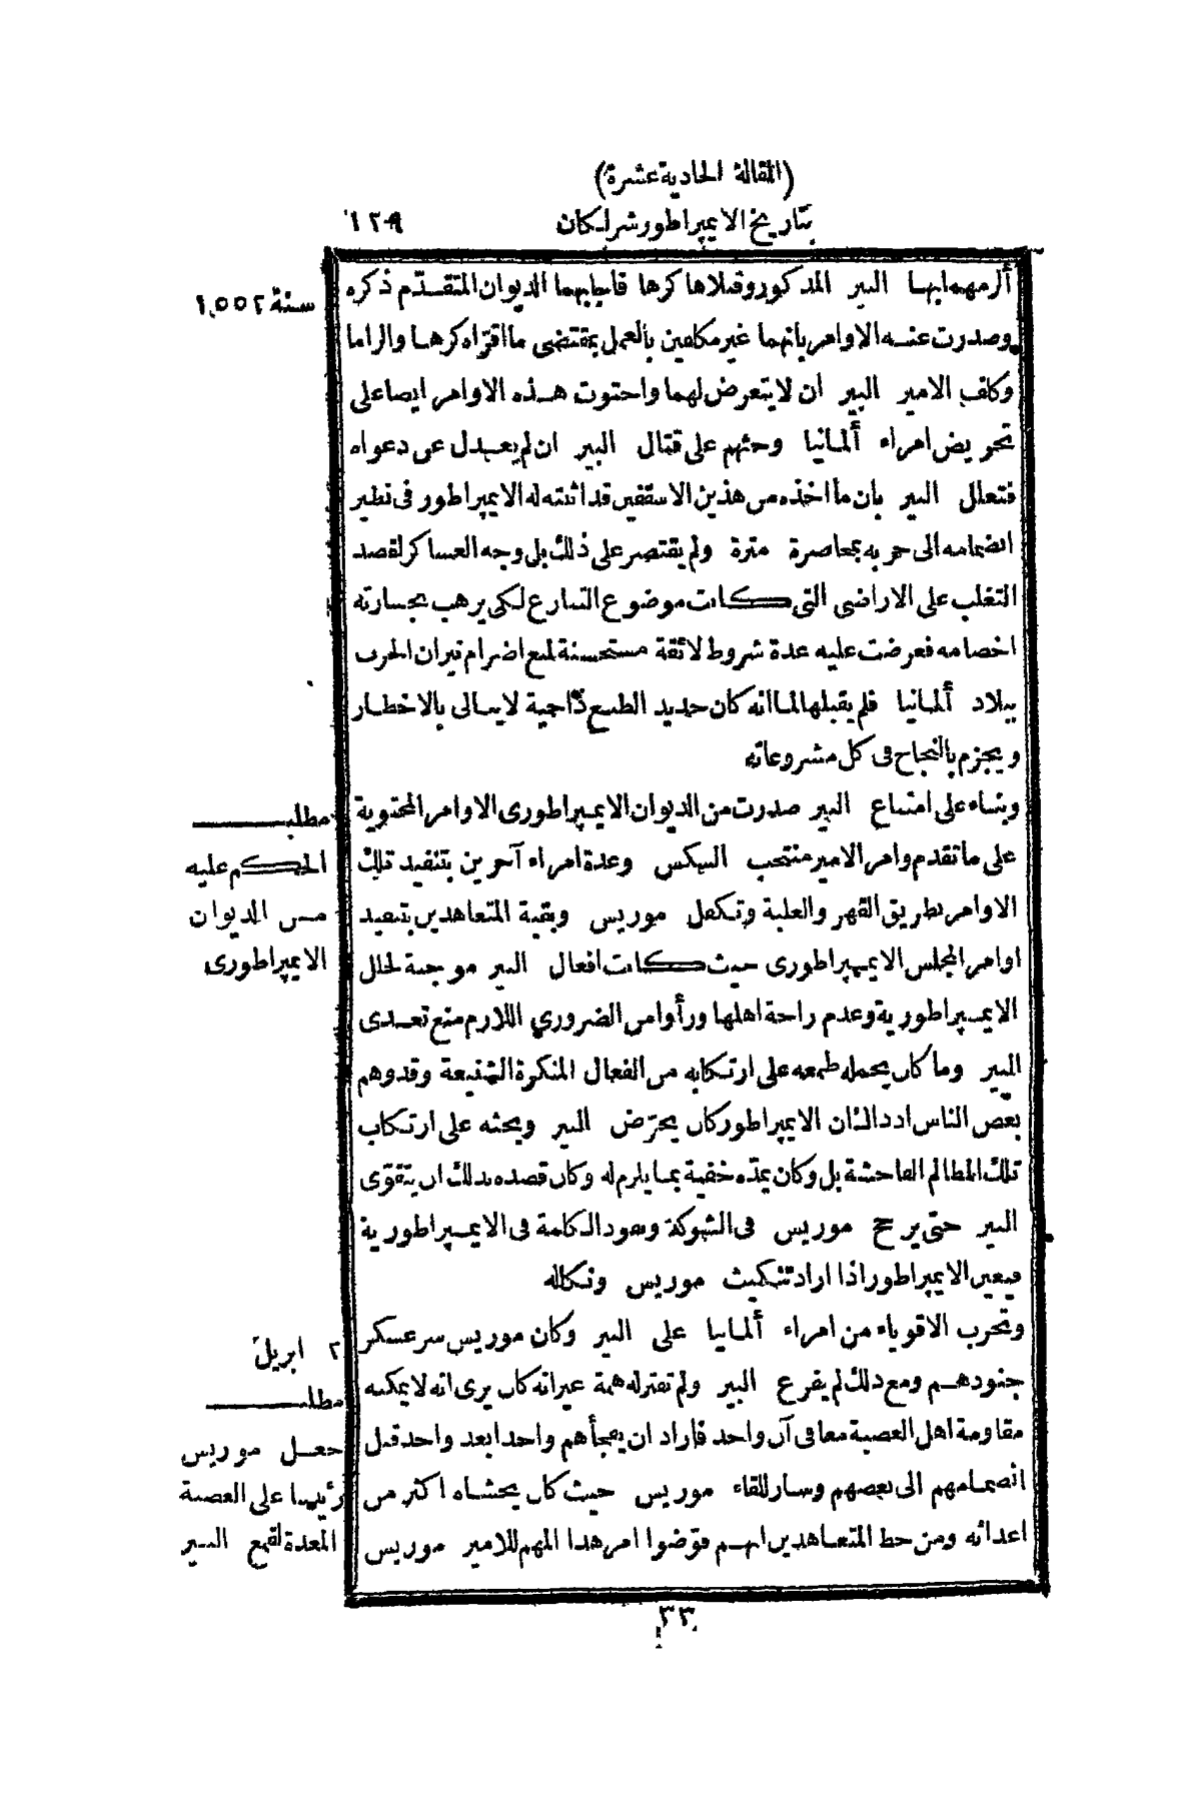 (المقالة الحادية عشرة)
بتاريخ الايمپراطور شرلكان
١٢٩
سنة ١٥٥٢
ألزمهما بها البير المذكور وقبلاها كرها فاجابهما الديوان المتقدّم ذكره
وصدرت عنه الاوامر بانهما غير مكلفين بالعمل بمقتضى ما اقرّاه كرها والزاما
وكلف الامير البير ان لا يتعرض لهما واحتوت هذه الاوامر ايضا على
تحريض امراء ألمانيا وحثهم على قتال البير ان لم يعدل عن دعواه
فتعلل البير بان ما اخذه من هذين الاسقفين قد اثبته له الايمپراطور فى نظير
انضمامه الى حزبه بمحاصرة متزة ولم يقتصر على ذلك بل وجه العساكر لقصد
التغلب على الاراضى التى كانت موضوع التنازع لكى يرهب بجسارته
اخصامه فعرضت عليه عدة شروط لائقة مستحسنة لمنع اضرام نيران الحرب
ببلاد ألمانيا فلم يقبلها لما انه كان حديد الطبع ذا حمية لا يبالى بالاخطار
ويجزم بالنجاح فى كل مشروعاته
وبناء على امتناع البير صدرت من الديوان الايمپراطورى الاوامر المحتوية
على ما تقدم وامر الامير منتخب السكس وعدة امراء آخرين بتنفيذ تلك
الاوامر بطريق القهر والغلبة وتكفل موريس وبقية المتعاهدين بتنفيذ
اوامر المجلس الايمپراطورى حيث كانت افعال البير موجبة لخلل
الايمپراطورية وعدم راحة اهلها ورأوا من الضرورى اللازم منع تعدى
البير وما كان يحمله طمعه على ارتكابه من الفعال المنكرة الشنيعة وقد وهم
بعض الناس اذ ذاك ان الايمپراطور كان يحرّض البير ويحثه على ارتكاب
تلك المظالم الفاحشة بل وكان يمدّه خفية بما يلزم له وكان قصده بذلك ان يتقوّى
البير حتى يرجح موريس فى الشوكة ونفوذ الكلمة فى الايمپراطورية
فيعين الايمپراطور اذا اراد تنكيث موريس ونكاله
وتحزب الاقوياء من امراء ألمانيا على البير وكان موريس سرعسكر
جنودهم ومع ذلك لم يفزع البير ولم تفتر له همة غير انه كان يرى انه لا يمكنه
مقاومة اهل العصبة معا فى آن واحد فاراد ان يفجأهم واحدا بعد واحد قبل
انضمامهم الى بعضهم وسار للقاء موريس حيث كان يخشاه اكثر من
اعدائه ومن حظ المتعاهدين انهم فوّضوا امر هذا المهم للامير موريس
مطلب
الحكم عليه
من الديوان
الايمپراطورى
٢ ابريل
مطلب
جعل موريس
رئيسا على العصبة
المعدة لقمع البير
٣٣